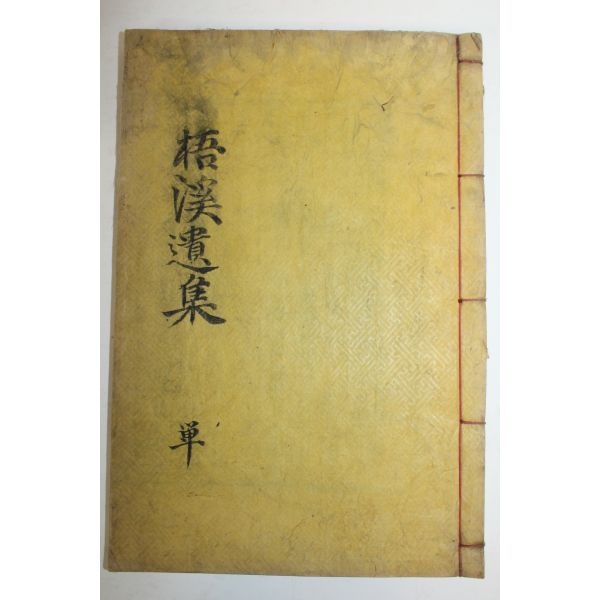 梧溪遺集
単